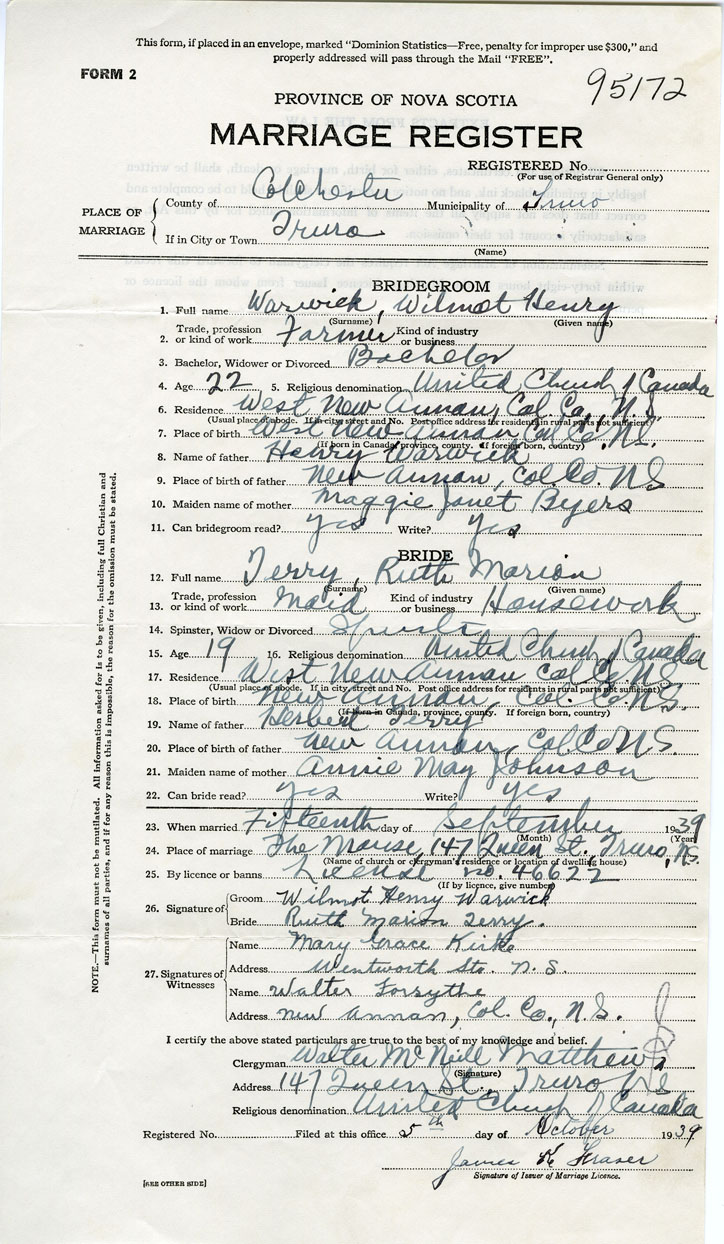 This form, if placed in an envelope, marked "Dominion Statistics—Free, penalty for improper use $300," and
properly addressed will pass through the Mail "FREE".
FORM 2
95172
PROVINCE OF NOVA SCOTIA
MARRIAGE REGISTER
REGISTERED No.
(For use of Registrar General only)
PLACE OF MARRIAGE
County of Colchester Municipality of Truro
If in City or Town Truro
(Name)
BRIDEGROOM
1. Full name Warwick, Wilmot Henry
(Surname) (Given name)
2. Trade, profession or kind of work Farmer Kind of industry or business
3. Bachelor, Widower or Divorced Bachelor
4. Age 22 5. Religious denomination United Church of Canada
6. Residence West New Annan, Col. Co., N.S.
(Usual place of abode. If in city, street and No. Post office address for residents in rural parts not sufficient)
7. Place of birth West New Annan, Col. Co. N.S.
(If born in Canada, province, county. If foreign born, country)
8. Name of father Henry Warwick
9. Place of birth of father New Annan, Col. Co. N.S
10. Maiden name of mother Maggie Janet Byers
11. Can bridegroom read? yes Write? yes
BRIDE
12. Full name Terry, Ruth Marion
(Surname) (Given name)
13. Trade, profession or kind of work Maid Kind of industry or business Housework
14. Spinster, Widow or Divorced Spinster
15. Age 19 16. Religious denomination United Church of Canada
17. Residence West New Annan Col. Co. N.S.
(Usual place of abode. If in city, street and No. Post office address for residents in rural parts not sufficient)
18. Place of birth New Annan, Col. Co. N.S.
(If born in Canada, province, county. If foreign born, country)
19. Name of father Herbert Terry
20. Place of birth of father New Annan, Col. Co N.S.
21. Maiden name of mother Annie May Johnson
22. Can bride read? yes Write? yes
23. When married Fifteenth day of September 1939
(Month) (Year)
24. Place of marriage The Manse, 147 Queen St., Truro, N.S.
(Name of church or clergyman's residence or location of dwelling house)
25. By licence or banns License no. 46622
(If by licence, give number)
26. Signature of
Groom Wilmot Henry Warwick
Bride Ruth Marion Terry.
27. Signatures of Witnesses
Name Mary Grace Kirke
Address Wentworth Sta. N.S.
Name Walter Forsythe
Address New Annan, Col. Co., N.S.
I certify the above stated particulars are true to the best of my knowledge and belief.
Clergyman Walter McNeill Matthews
(Signature)
Address 147 Queen St., Truro N.S
Religious denomination United Church of Canada
Registered No. Filed at this office 5th day of October 1939
James K Fraser
Signature of Issuer of Marriage Licence.
[SEE OTHER SIDE]
NOTE.—This form must not be mutilated. All information asked for is to be given, including full Christian and
surnames of all parties, and if for any reason this is impossible, the reason for the omission must be stated.